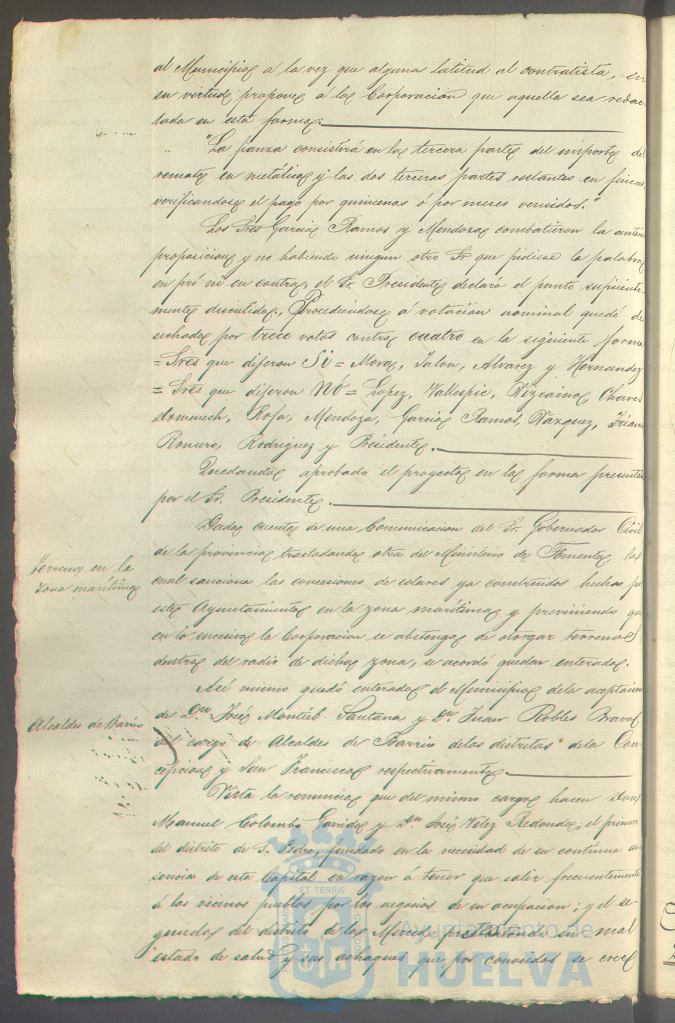 al Municipio á la vez que alguna latitud al contratista, en
en virtud propone á la Corporacion que aquella sea redac-
tada en esta forma:
"La fianza consistirá en la tercera parte del importe del
remate en metálico y las dos terceras partes restantes en fincas
verificandose el pago por quincenas ó por meses vencidos."
Los Sres Garcia Ramos y Mendoza combatieron la anterior
proposicion y no habiendo ningun otro Sr que pidiese la palabra
en pró ni en contra, el Sr. Presidente declaró el punto suficiente-
mente discutido. Procediendose á votacion nominal quedó de-
sechada por trece votos contra cuatro en la siguiente forma
= Sres que dijeron Si = Mora, Jalon, Alvarez y Hernandez
= Sres que dijeron No = Lopez, Vallespin, Vizcaino, Chaves
Domenech, Rofa, Mendoza, Garcia Ramos, Vazquez,
Romero, Rodriguez y Presidente.
Quedando aprobado el proyecto en la forma presentada
por el Sr. Presidente.
Terrenos en la
zona marítima
Dada cuenta de una Comunicacion del Sr. Gobernador Civil
de la provincia trasladando otra del Ministerio de Fomento la
cual sanciona las concesiones de solares ya construidos hechas por
este Ayuntamiento en la zona marítima y previniendo que
en lo sucesivo la Corporacion se abstenga de otorgar terrenos
dentro del radio de dicha zona, se acordó quedar enterado.
Alcaldes de Barrio
Asi mismo quedó enterado el Municipio de la aceptacion
de Dn José Montiel Santana y Dn Juan Robles Bravo
del cargo de Alcaldes de Barrio de los distritos de la Con-
cepcion y San Francisco respectivamente.
Vista la renuncia que del mismo cargo hacen Don
Manuel Colombo Garrido y Dn José Velez Redondo; el primero
del distrito de S. Pedro, fundado en la necesidad de su continua au-
sencia de esta Capital en razon á tener que salir frecuentemente
á los vecinos pueblos por los negocios de su ocupacion; y el se-
gundo del distrito de la Merced pretestando su mal
estado de salud y sus achaques que por conocidos se cree
Ayuntamiento de
HUELVA